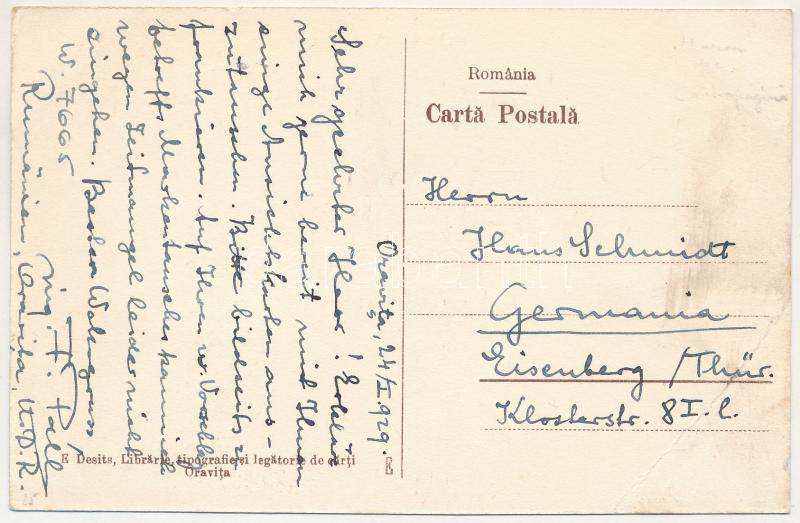 Oravița, 24/I.929.
Sehr geehrter Herr! Erkläre
mich gerne bereit mit Ihnen
einige Ansichtskarten aus-
zutauschen. Bitte bildseits zu
frankieren. Auf Ihren w. Vorschlag
betreffs Markentausches kann ich
wegen Zeitmangel leider nicht
eingehen. Besten Waidgruss
W. 7665
Ing. F. Pall
Rumänien, Oravița, U.D.R.
România
Cartă Postală
Herrn
Hans Schmidt
Germania
Eisenberg /Thür.
Klosterstr. 8 I. l.
E Desits, Librărie, tipografie și legătorie de cărți
Oravița
E